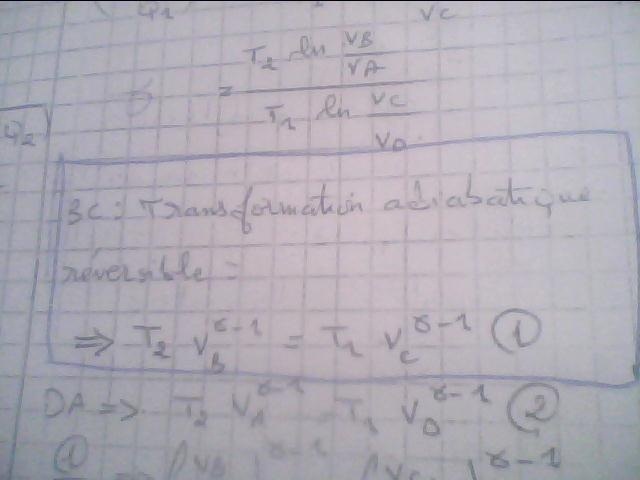 φ1
VC
= T2 ln VB/VA
T1 ln VC/VD
φ2
BC: Transformation adiabatique
réversible:
⇒ T2 V_B^γ-1 = T1 V_C^γ-1 ①
DA ⇒ T2 V_A^γ-1 = T1 V_D^γ-1 ②
①
(VB
(VC
)^γ-1